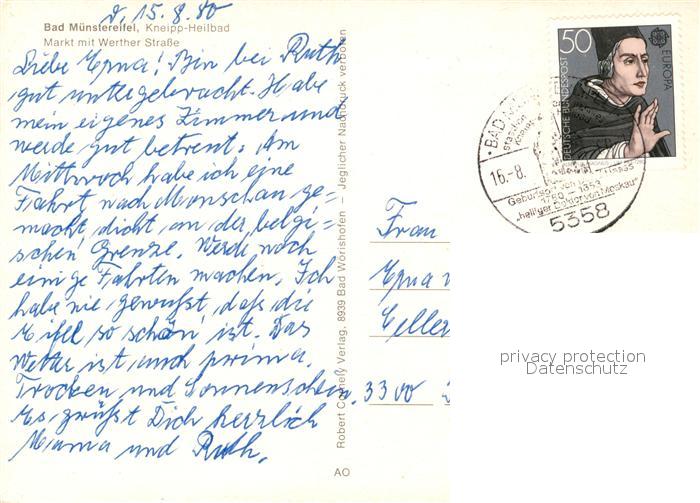 d, 15.8.80
Bad Münstereifel, Kneipp-Heilbad
Markt mit Werther Straße
Liebe Erna! Bin bei Ruth
gut untergebracht. Habe
mein eigenes Zimmer und
werde gut betreut. Am
Mittwoch habe ich eine
Fahrt nach Monschau ge-
macht, dicht an der belgi-
schen Grenze. Werde noch
einige Fahrten machen. Ich
habe nie gewußt, daß die
Eifel so schön ist. Das
Wetter ist auch prima.
Trocken und Sonnenschein.
Es grüßt Dich herzlich
Mama und Ruth.
Robert Cornely Verlag, 8939 Bad Wörishofen – Jeglicher Nachdruck verboten
AO
50
DEUTSCHE BUNDESPOST
EUROPA
BAD
16.-8.
Geburtsort von
1780 – 1853
„heiliger Doktor von Moskau"
5358
Frau
Erna
Celler
3300
privacy protection
Datenschutz